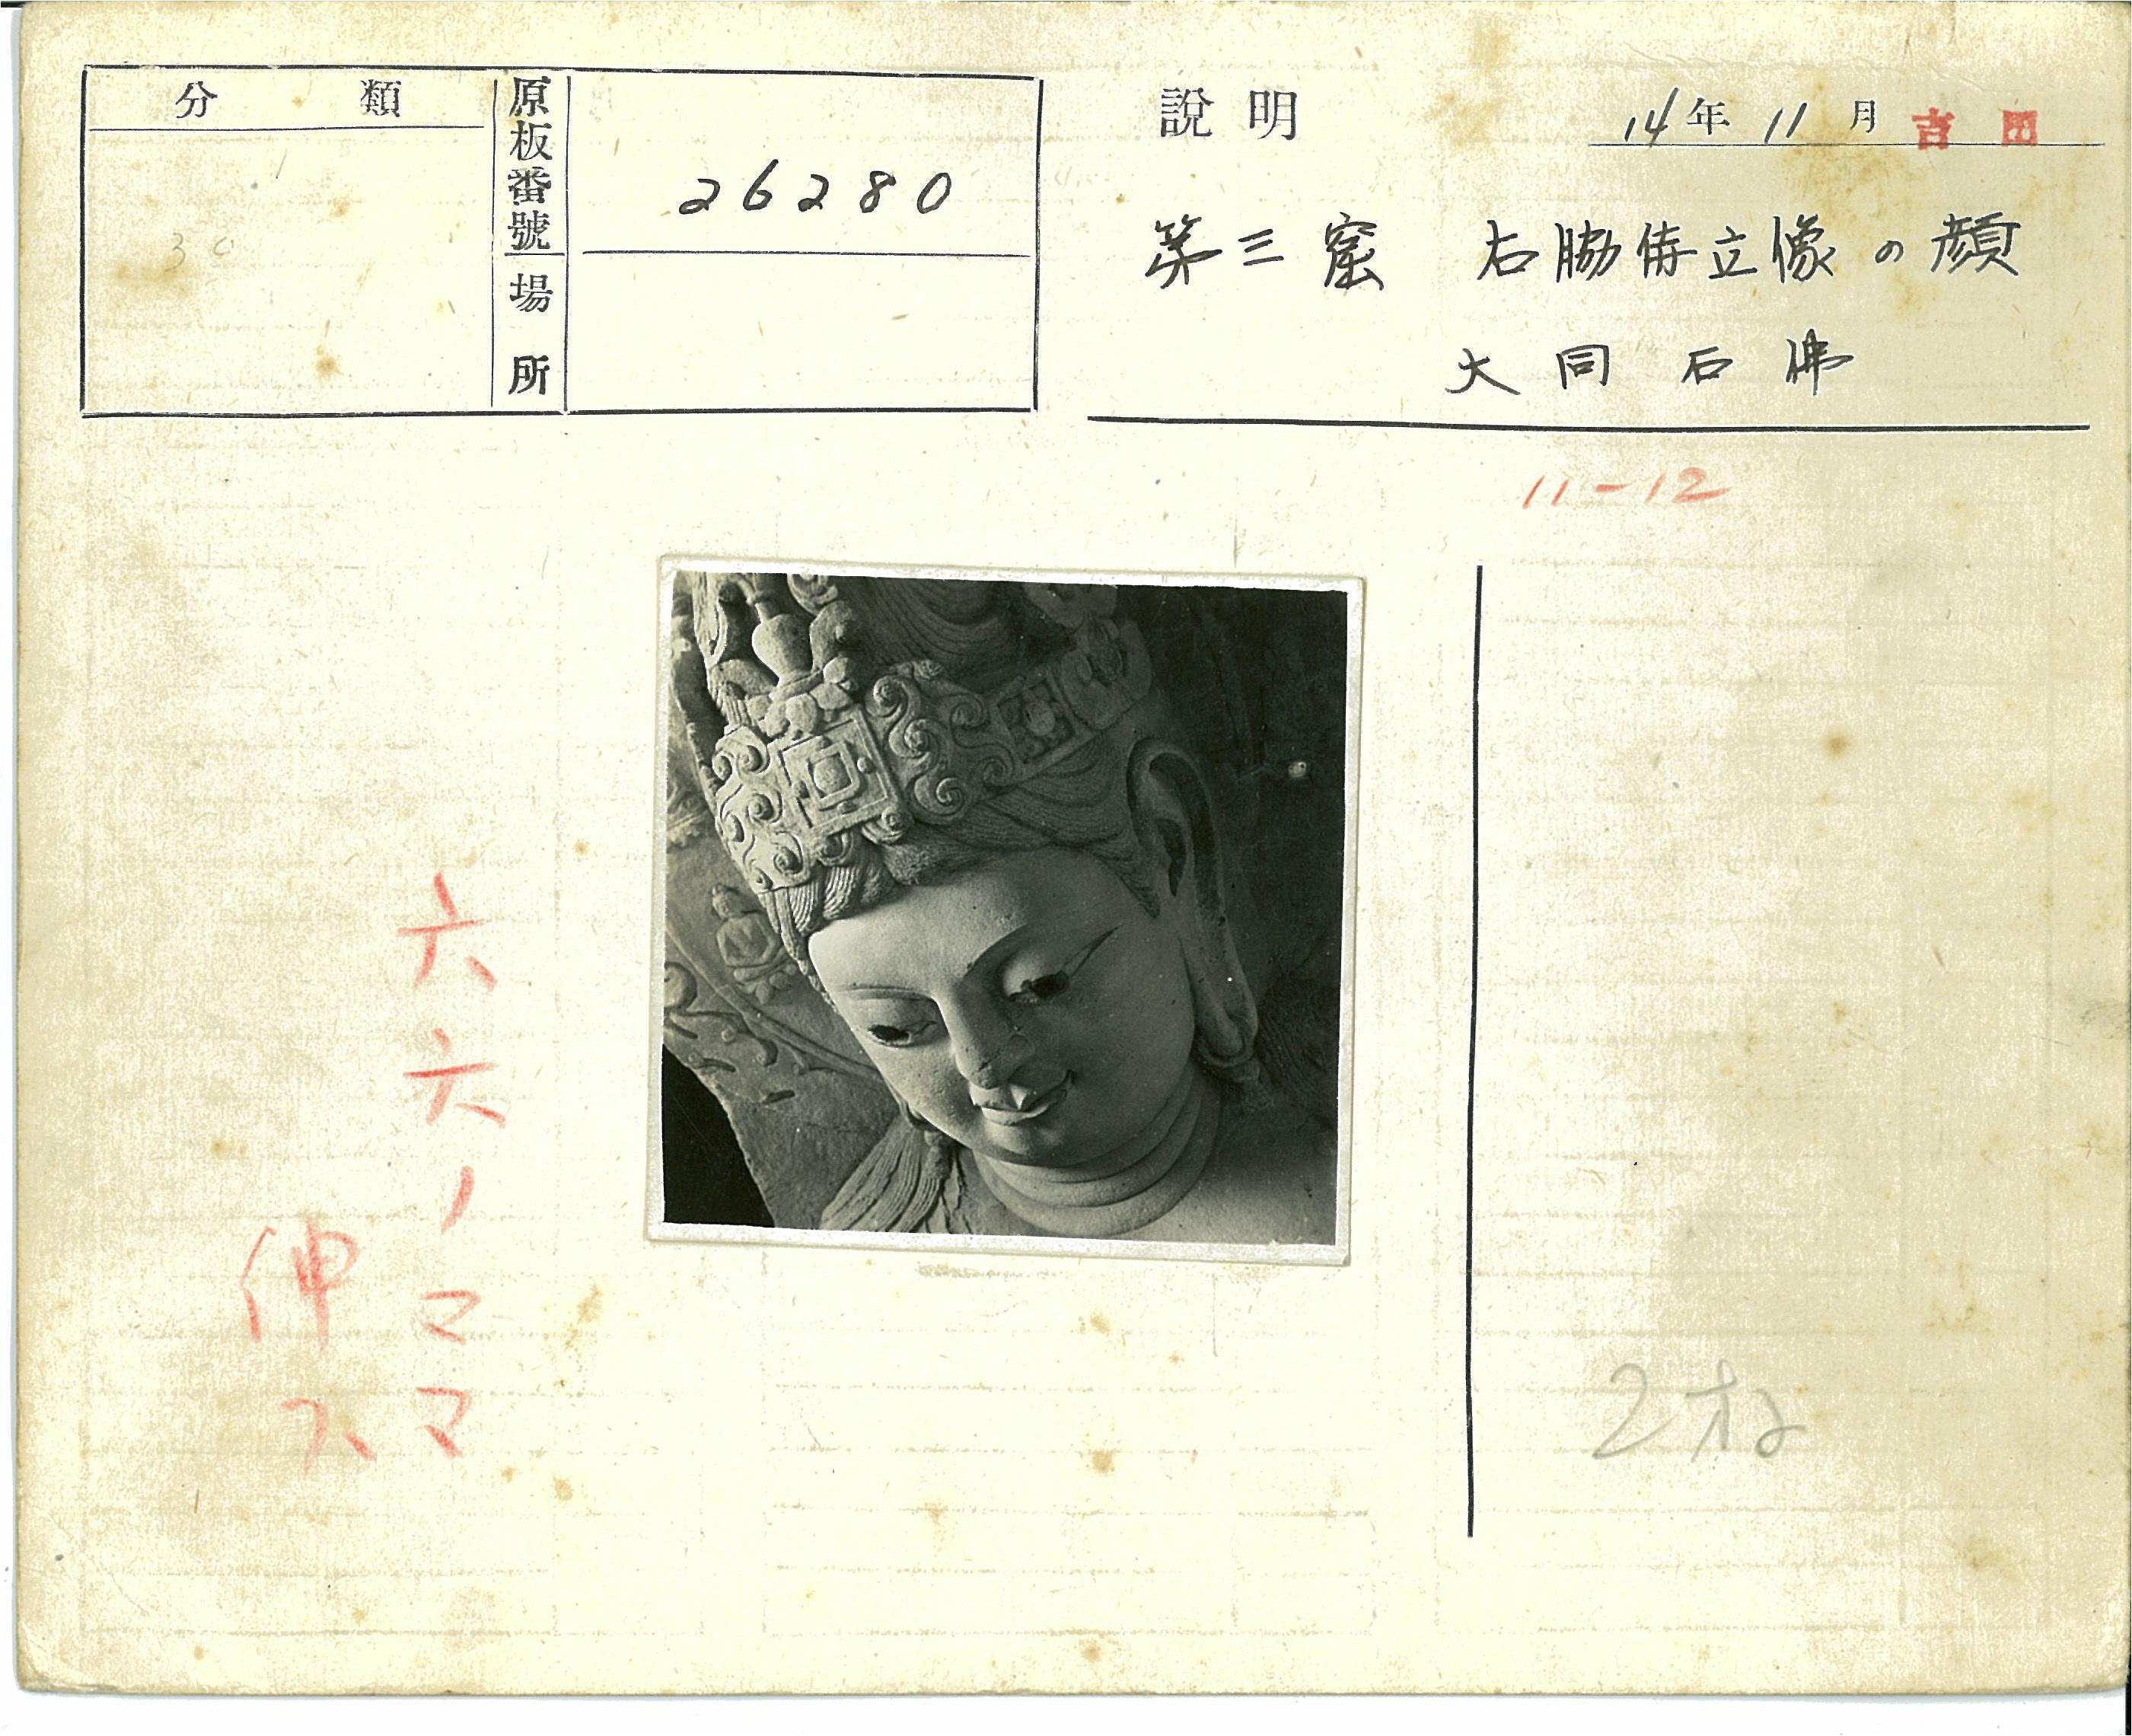 分類
原板番號
26280
場所
說明
14年11月 吉田
第三窟 右脇侍立像の顔
大同石佛
11-12
六六ノママ
伸ス